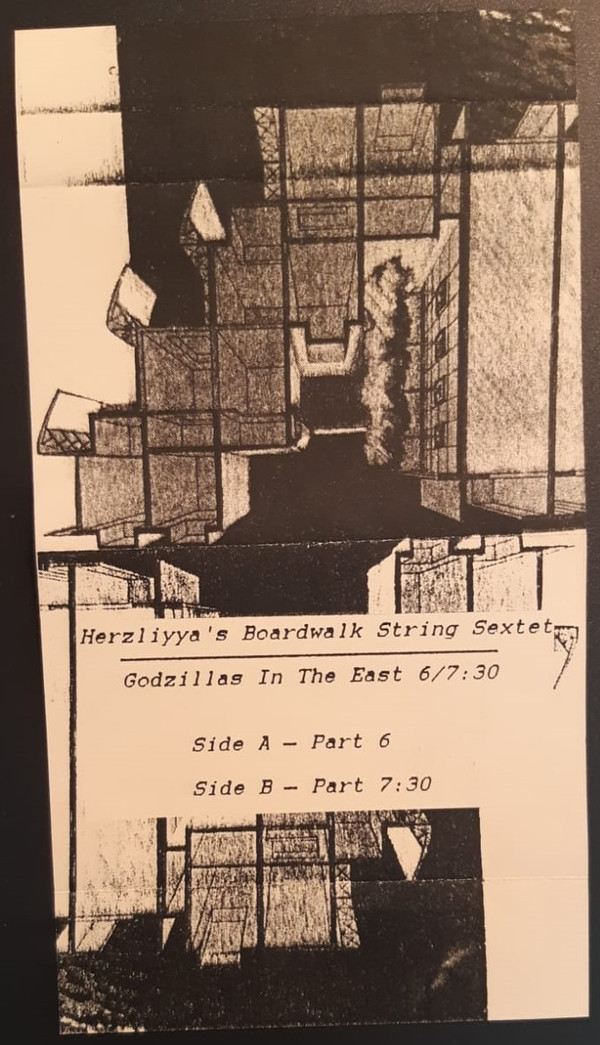 Herzliyya's Boardwalk String Sextet
Godzillas In The East 6/7:30
Side A – Part 6
Side B – Part 7:30